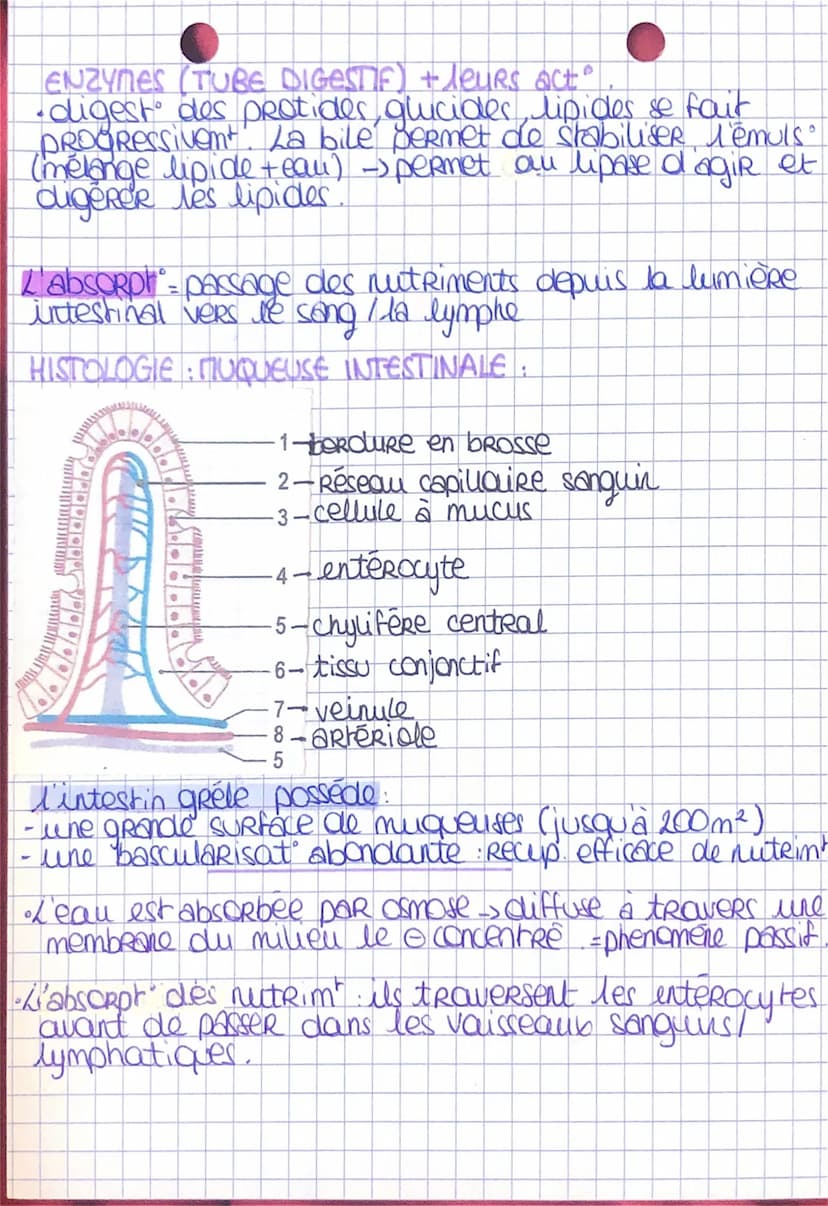 ENZYMES (TUBE DIGESTIF) + leurs act°.
• digest° des protides, glucides, lipides se fait
PROGRESSIVEMt. La bile permet de stabiliser l'émuls°
(mélange lipide + eau) → permet au lipase d'agir et
digérer les lipides.
L'absorpt° = passage des nutriments depuis la lumière
intestinal vers le sang / la lymphe
HISTOLOGIE : MUQUEUSE INTESTINALE :
1 - bordure en brosse
2 - Réseau capillaire sanguin
3 - cellule à mucus
4 - entérocyte
5 - chylifère central
6 - tissu conjonctif
7 - veinule
8 - artériole
5
l'intestin grêle possède :
- une grande surface de muqueuses (jusqu'à 200m²)
- une bascularisat° abondante : récup. efficace de nutrimt
• L'eau est absorbée par osmose → diffuse à travers une
membrane du milieu le ⊖ concentré = phénomène passif.
• L'absorpt° des nutrimt : ils traversent les entérocytes
avant de passer dans les vaisseaux sanguins/
lymphatiques.